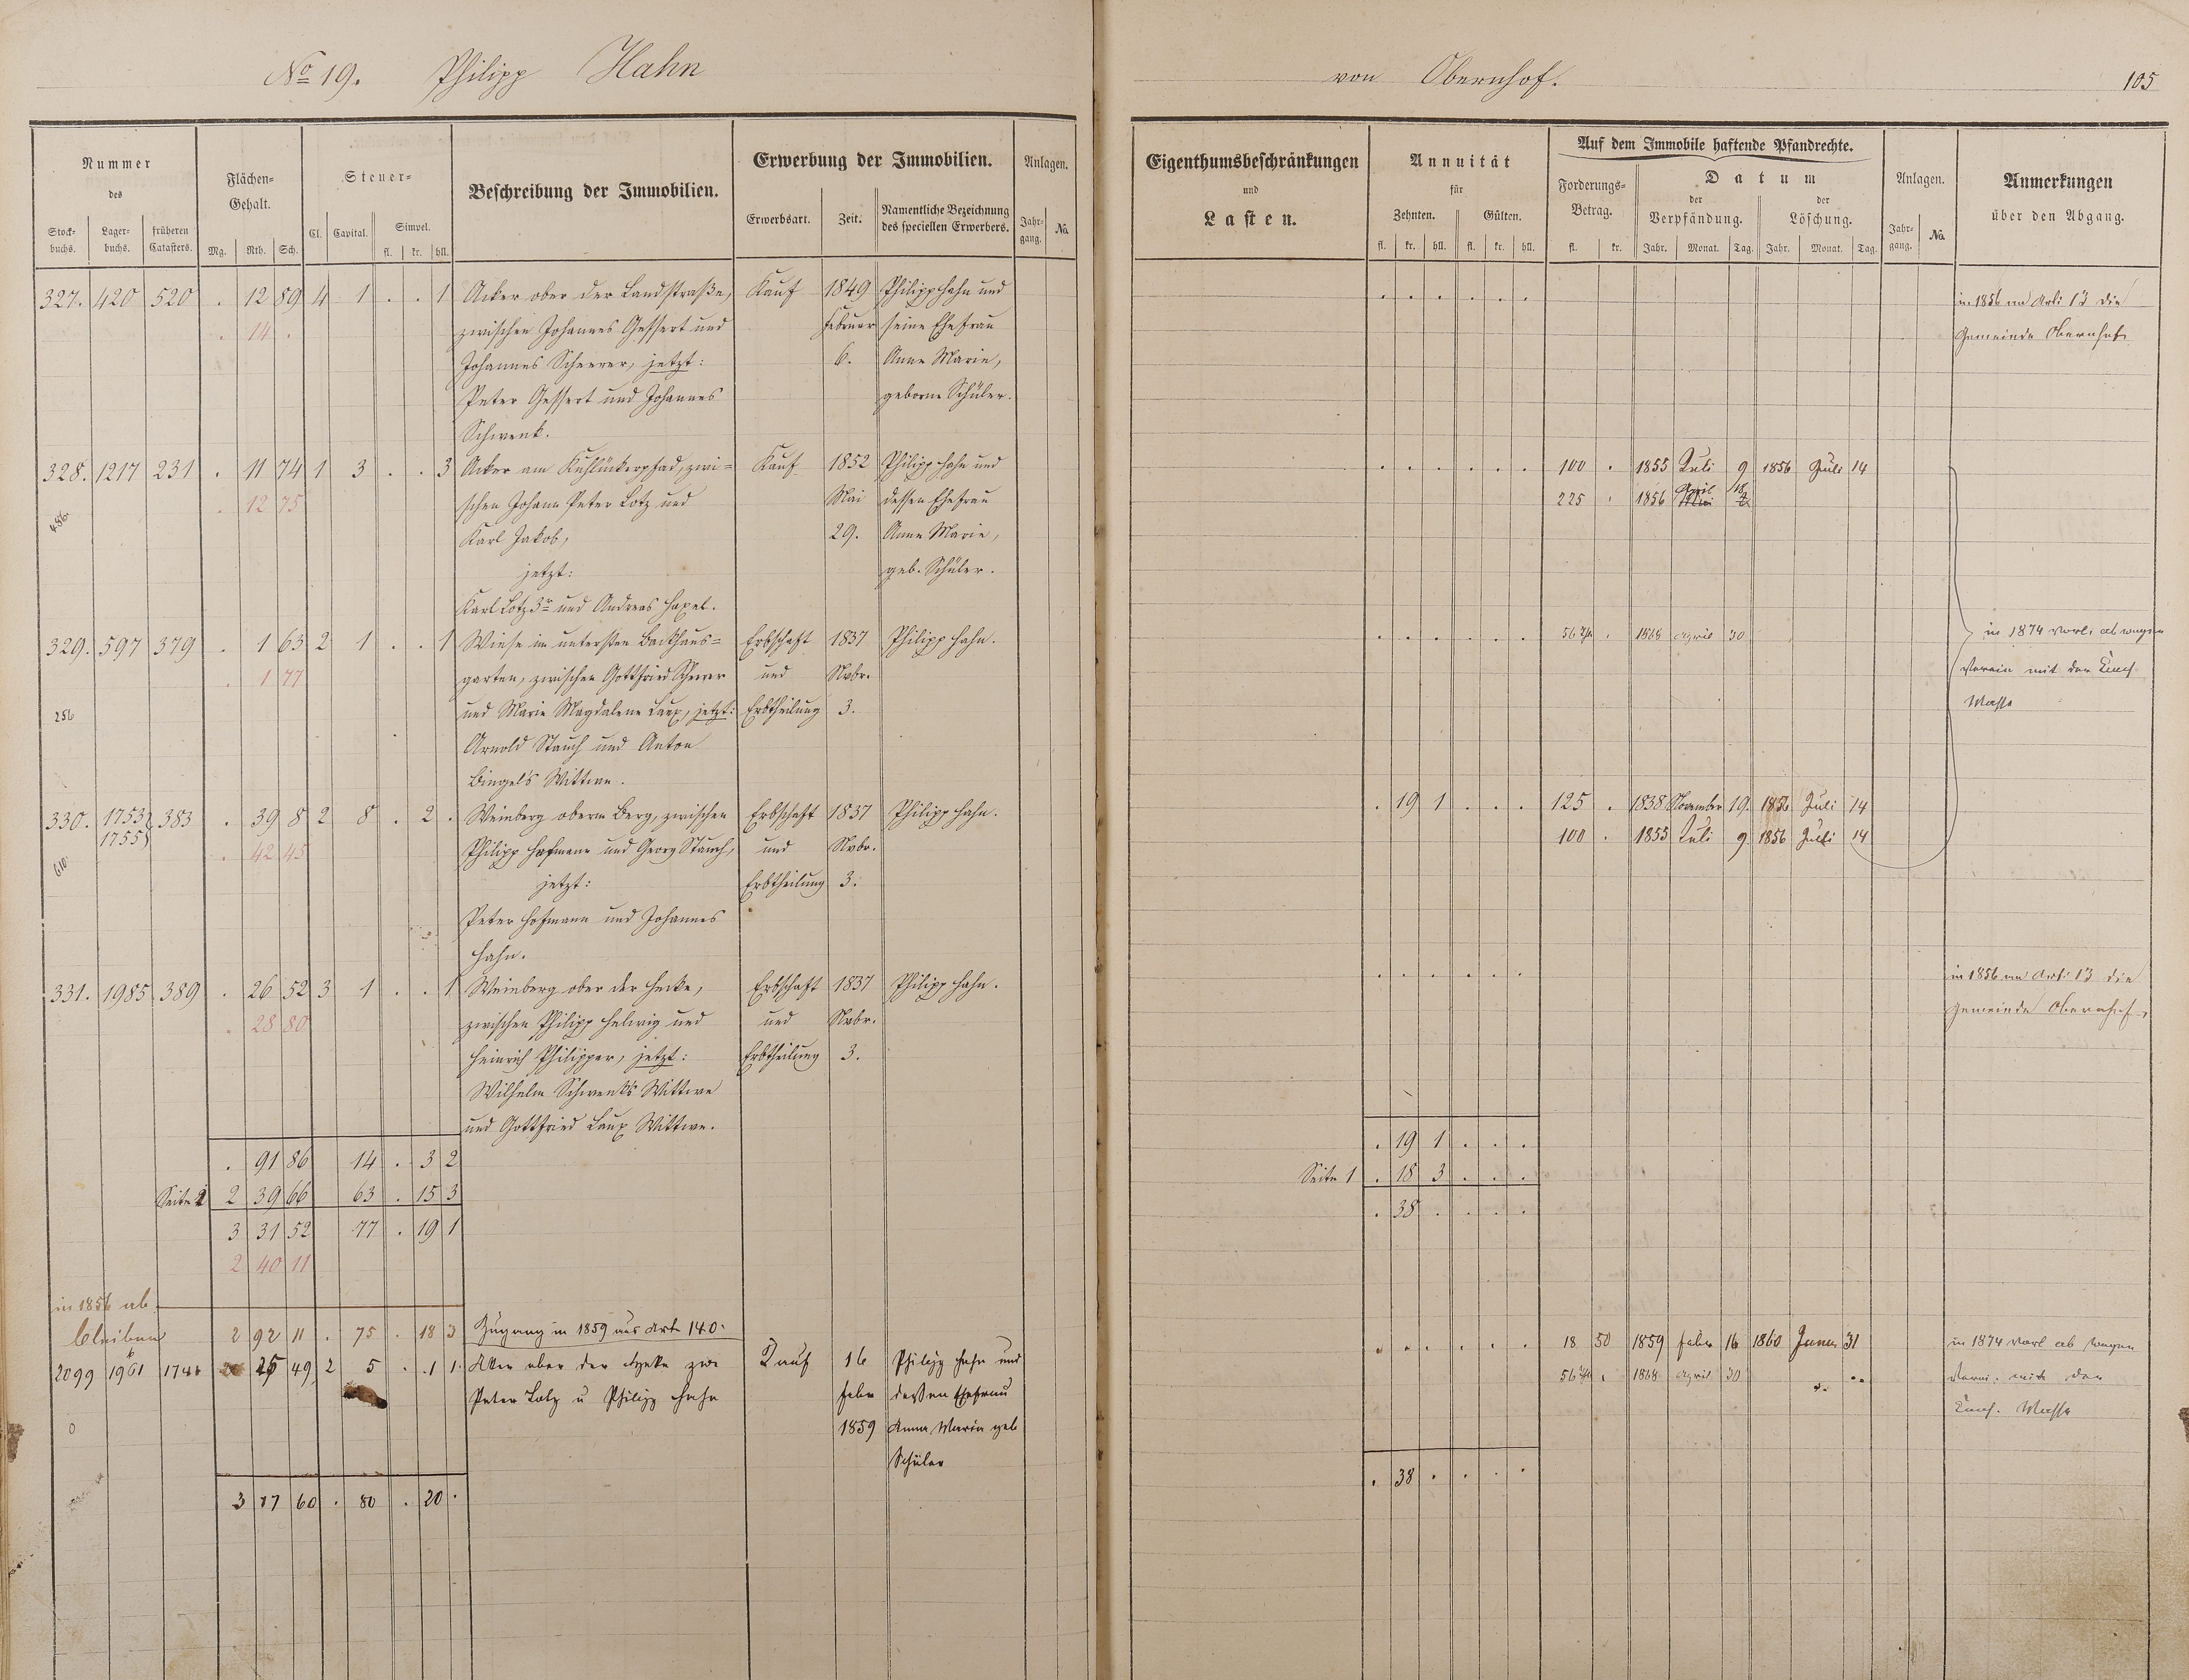 No 19. Philipp Hahn
von Obernhof.
105
Nummer
des
Stock-
buchs.
Lager-
buchs.
früheren
Catasters.
Flächen-
Gehalt.
Mg. Rth. Sch.
Steuer-
Cl. Capital. Simpel.
fl. kr. hll.
Beschreibung der Immobilien.
Erwerbung der Immobilien.
Erwerbsart. Zeit. Namentliche Bezeichnung
des speciellen Erwerbers.
Anlagen.
Jahr-
gang. No.
Eigenthumsbeschränkungen
und
Lasten.
Annuität
für
Zehnten. Gülten.
fl. kr. hll. fl. kr. hll.
Auf dem Immobile haftende Pfandrechte.
Forderungs-
Betrag.
fl. kr.
Datum
der
Verpfändung.
der
Löschung.
Jahr. Monat. Tag. Jahr. Monat. Tag.
Anlagen.
Jahr-
gang. No.
Anmerkungen
über den Abgang.
327. 420 520 . 12 89 4 1 . . 1 Acker ober der Landstraße, Kauf 1849 Philipp Hahn und
. 14 . zwischen Johannes Gessert und Februar seine Ehefrau
Johannes Scheerer, jetzt: 6. Anne Marie,
Peter Gessert und Johannes geborne Schüler.
Schwenk.
in 1856 an Arti 13 die
Gemeinde Obernhof
328. 1217 231 . 11 74 1 3 . . 3 Acker am Kuhlückerpfad, zwi- Kauf 1852 Philipp Hahn und
. 12 75 schen Johann Peter Lotz und Mai dessen Ehefrau
486. Karl Jakob, 29. Anne Marie,
jetzt: geb. Schüler.
Karl Lotz 3r und Andreas Hapel.
100 . 1855 Juli 9 1856 Juli 14
225 . 1856 April 18
329. 597 379 . 1 63 2 1 . . 1 Wiese im untersten Backhaus- Erbschaft 1837 Philipp Hahn.
. 1 77 garten, zwischen Gottfried Scherer und Nvbr.
256 und Marie Magdalene Laux, jetzt: Erbtheilung 3.
Arnold Stauch und Anton
Bingel's Wittwe.
1868 April 30
in 1874 vorl. ab wegen
Verein mit der
Masse
330. 1753 383 . 39 8 2 8 . 2 . Weinberg oberm Berg, zwischen Erbschaft 1837 Philipp Hahn.
1755 . 42 45 Philipp Hofmann und Georg Stauch, und Nvbr.
610. jetzt: Erbtheilung 3.
Peter Hofmann und Johannes
Hahn.
. 19 1 . . . 125 . 1838 November 19. 1856 Juli 14
100 . 1855 Juli 9 1856 Juli 14
331. 1985 389 . 26 52 3 1 . . 1 Weinberg ober der Hecke, Erbschaft 1837 Philipp Hahn.
. 28 80 zwischen Philipp Helwig und und Nvbr.
Heinrich Philipper, jetzt: Erbtheilung 3.
Wilhelm Schwenk's Wittwe
und Gottfried Laux Wittwe.
in 1856 an Arti 13 die
Gemeinde Obernhof.
. 91 86 14 . 3 2
Seite 1 2 39 66 63 . 15 3
3 31 52 77 . 19 1
2 40 11
. 19 1 . . .
Seite 1 . 18 3 . . .
. 38 . . . .
in 1856 ab
bleiben 2 92 11 . 75 . 18 3 Zugang in 1859 aus Art 140.
2099 1961 1746 25 49 2 5 . . 1 1. Acker ober der Hecke zw. Kauf 16 Philipp Hahn und
Peter Lotz u Philipp Hahn Febr dessen Ehefrau
0 1859 Anna Maria geb
Schüler
18 50 1859 Febr 16 1860 Januar 31
1868 April 30
in 1874 vorl ab wegen
Verein. mit der
Masse
3 17 60 . 80 . 20 .
. 38 . . . .